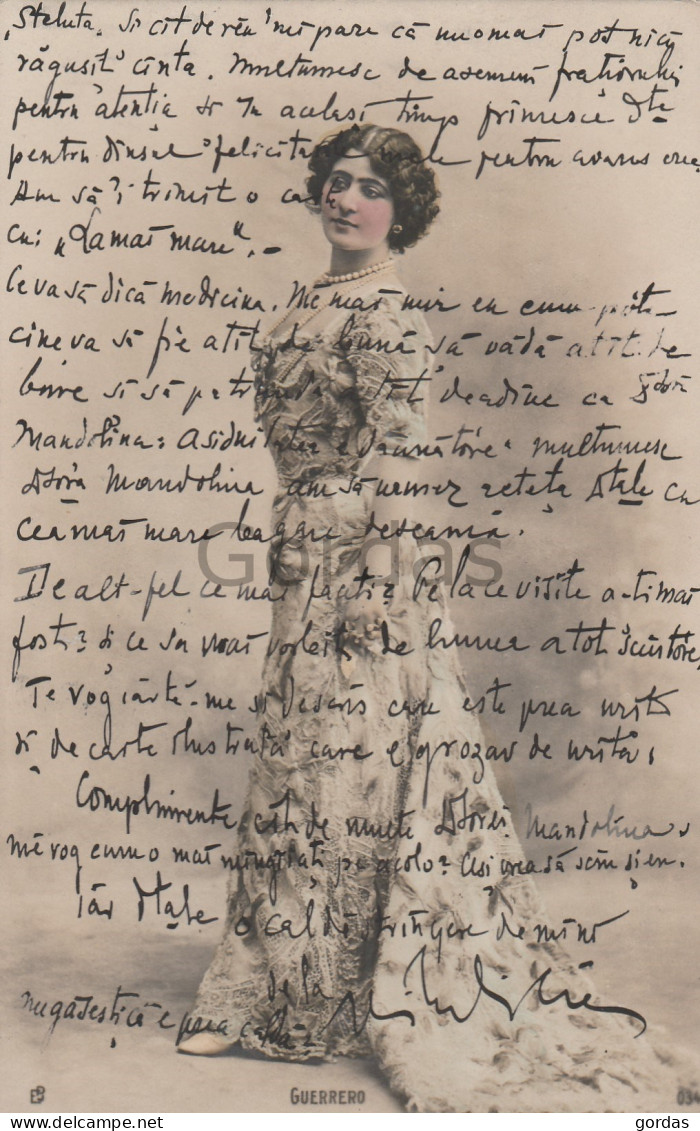 „Steluța„ Și cît de rău îmi pare că nu mai pot nici
răgușit cînta. Multumesc de asemeni frațiorului
pentru atenția și în același timp primește Dta
pentru dînsul felicitările mele pentru
Am să-i trimit o carte
cui „Lamaı mare„.-
Ceva să dică medicina. Me mai mir eu cum pote
cineva să fie atît de bună să vădă atît de
bine și să patrundă atît deadinc ca Dóra
Mandolina: Asiduitatea e dăunătóre: multumesc
Dóra Mandolina am să urmez rețeta Dtale cu
cea mai mare bagare deseamă.
De alt-fel ce mai faceți? Pe la ce visite a-ți mai
fost? și ce s'a mai vorbit de lumea atot
Te rog iartă-me și Descris care este prea urît
și de carte ilustrată care e grozav de urîtă;
Complimente cît de multe Dórei Mandolina
mĕ rog cum o mai mîngîiați pe acolo? Ași vrea să știu și eu.
iar Dtale o caldă strîngere de mînă
de la
nu găsești că e prea caldă?
GUERRERO
034
Gordas
www.delcampe.net
gordas